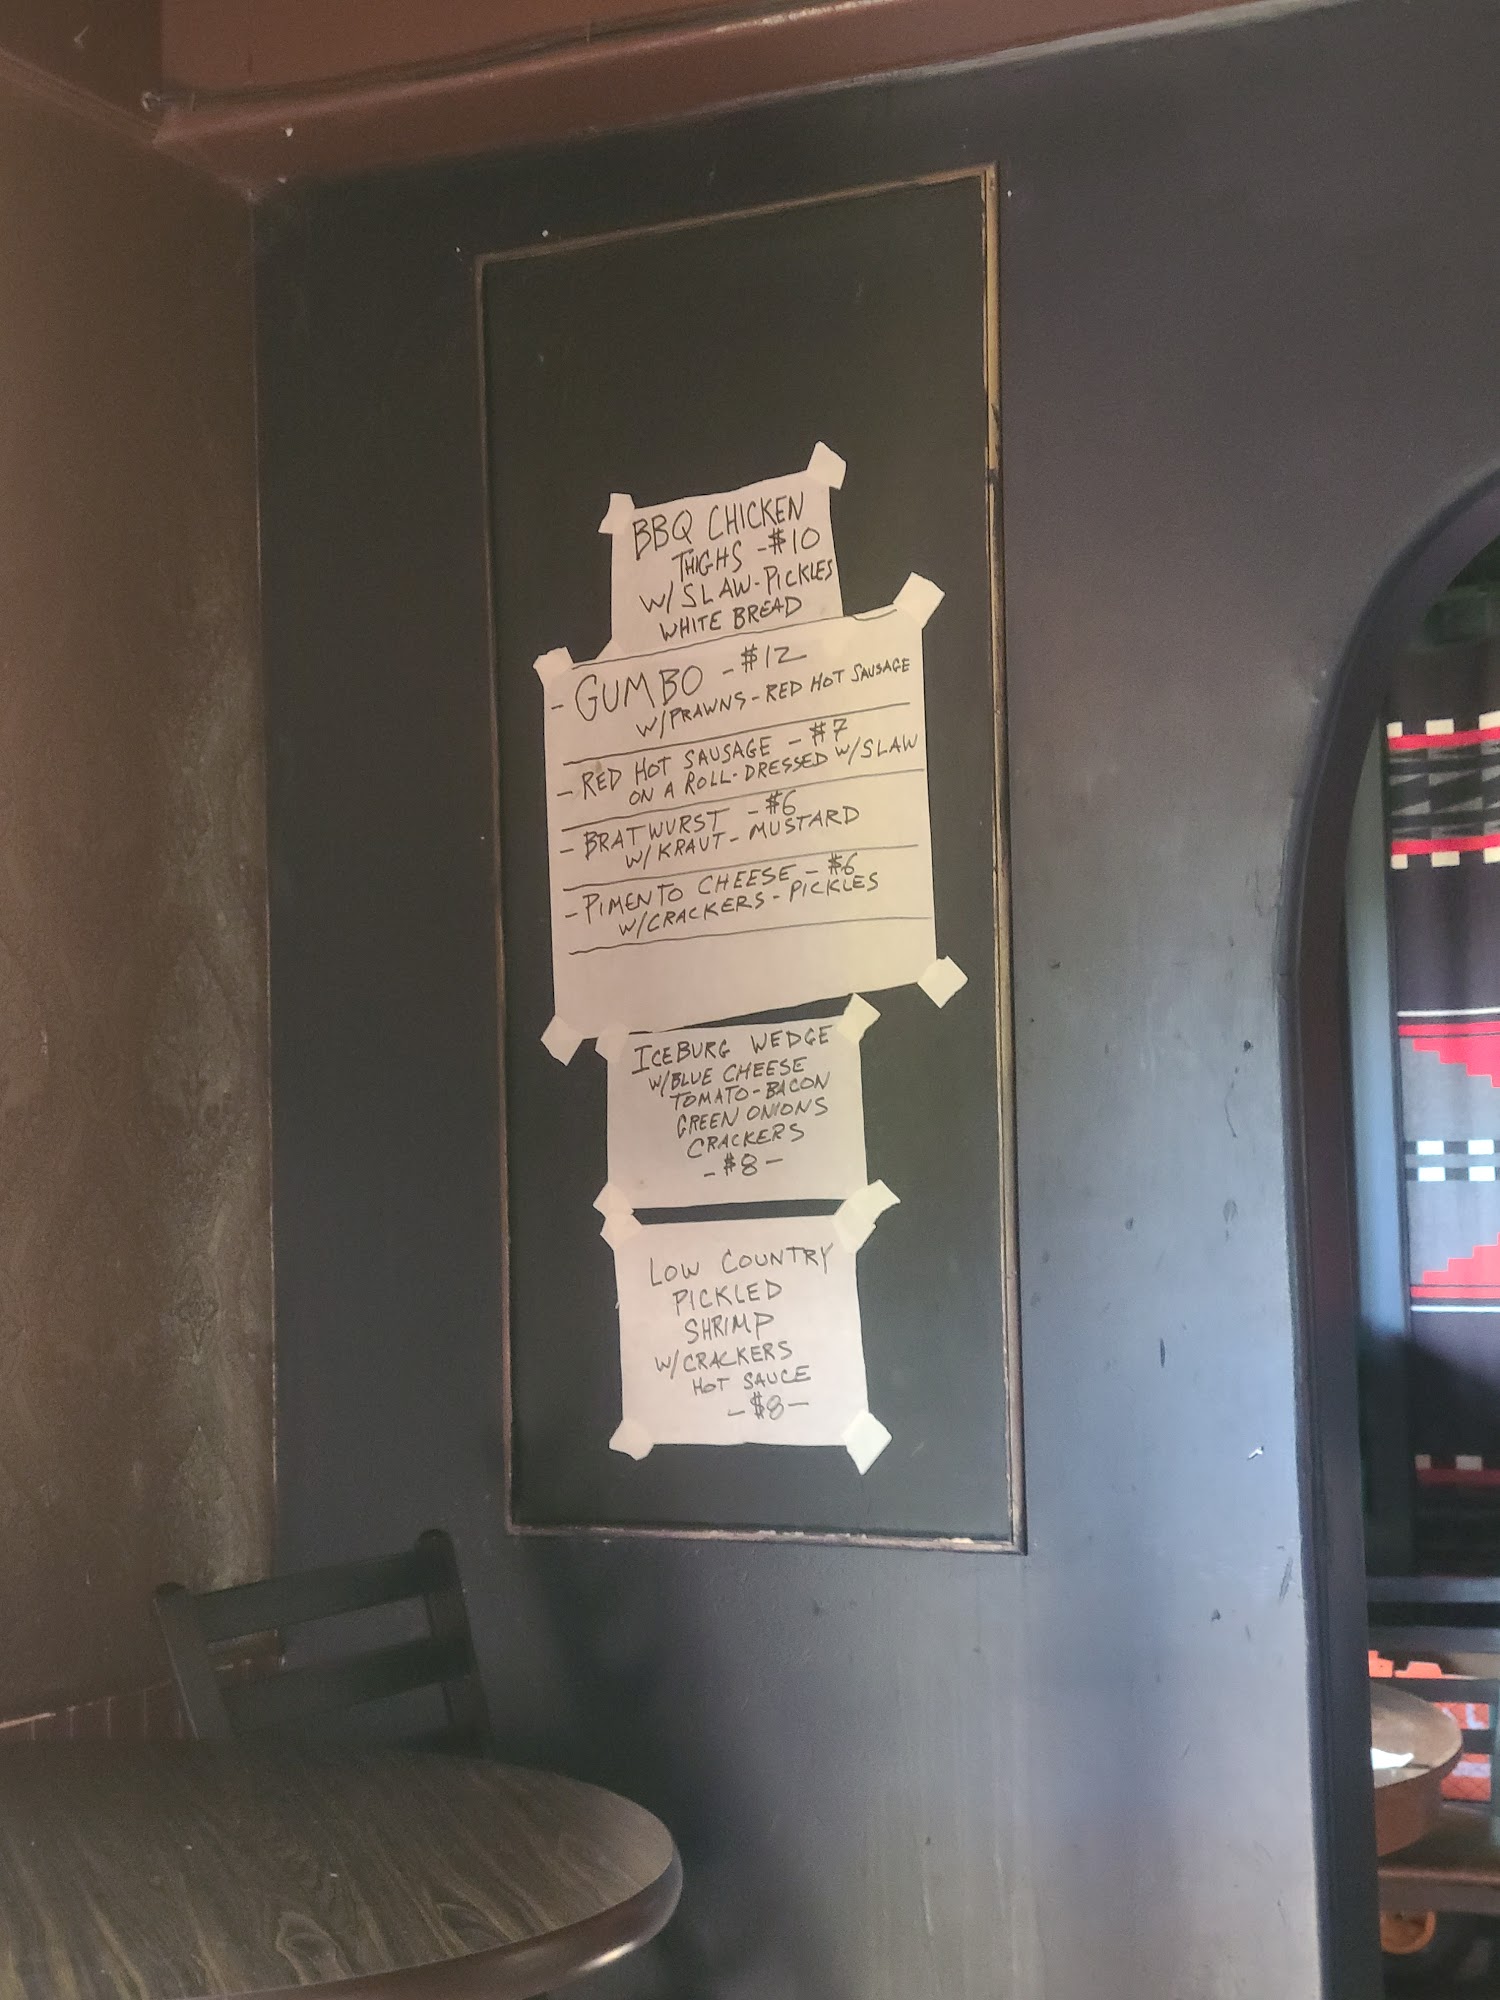 BBQ CHICKEN
THIGHS - $10
W/ SLAW - PICKLES
WHITE BREAD
- GUMBO - $12
W/PRAWNS - RED HOT SAUSAGE
- RED HOT SAUSAGE - $7
ON A ROLL - DRESSED W/SLAW
- BRATWURST - $6
W/KRAUT - MUSTARD
- PIMENTO CHEESE - $6
W/CRACKERS - PICKLES
ICEBURG WEDGE
W/BLUE CHEESE
TOMATO - BACON
GREEN ONIONS
CRACKERS
- $8 -
LOW COUNTRY
PICKLED
SHRIMP
W/CRACKERS
HOT SAUCE
- $8 -